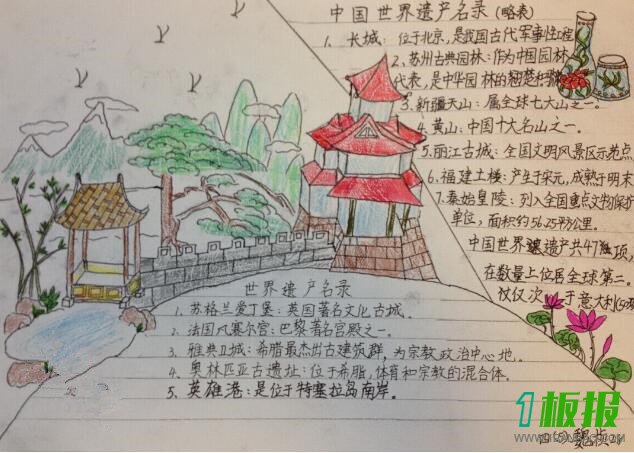 中国世界遗产名录(略表)
1、长城：位于北京，是我国古代军事性工程
2、苏州古典园林：作为中国园林
代表，是中华园林的翘楚和骄
3、新疆天山：属全球七大山之一。
4、黄山：中国十大名山之一。
5、丽江古城：全国文明风景区示范点
6、福建土楼：产生于宋元，成熟于明末
7、秦始皇陵：列入全国重点文物保护
单位，面积约56.25平方公里。
中国世界遗产共47项，
在数量上位居全球第二。
仅仅次于意大利(50项
世界遗产名录
1、苏格兰爱丁堡：英国著名文化古城。
2、法国凡赛尔宫：巴黎著名宫殿之一。
3、雅典卫城：希腊最杰出古建筑群，为宗教政治中心地。
4、奥林匹亚古遗址：位于希腊，体育和宗教的混合体。
5、英雄港：是位于特塞拉岛南岸。
1板报